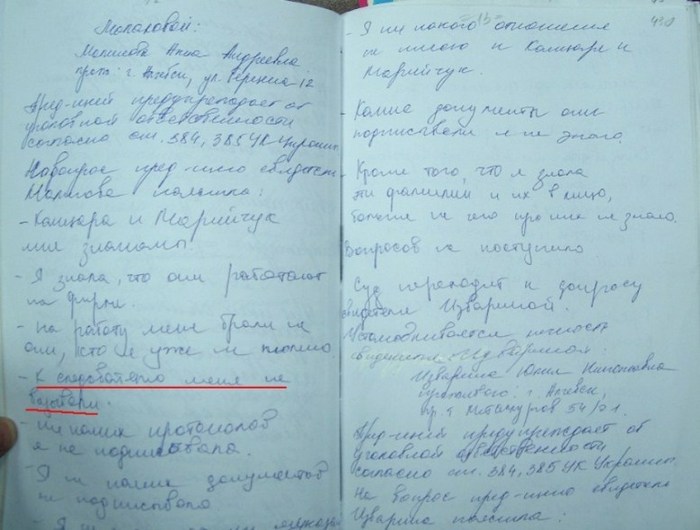 Малаховой:
Малахова Анна Андреевна
прож: г. Алчевск, ул. Герцена 12
Пред-ший предупреждает об
уголовной ответственности
согласно ст. 384, 385 УК Украины
На вопрос пред-щего свидетель
Малахова пояснила:
- и Марийчук
мне знакомы
- Я знала, что они работают
на фирме.
- на работу меня брали не
они, кто я уже не помню
- К следователю меня не
вызывали.
- ни каких протоколов
я не подписывала.
- Я ни какие документов
не подписывала
- Я ни какого отношения
не имею к и
Марийчук.
- Какие документы они
подписывали я не знаю.
- Кроме того, что я знала
эти фамилии и их в лицо,
больше не чего про них не знала.
Вопросов не поступило
Суд переходит к допросу
свидетеля Извариной.
Устанавливается личность
свидетеля Извариной
Изварина Юлия
г. Алчевск,
пр. Металлургов 54/
Пред-ший предупреждает об
уголовной ответственности
согласно ст. 384, 385 УК Украины.
На вопрос пред-щего свидетель
Изварина пояснила: